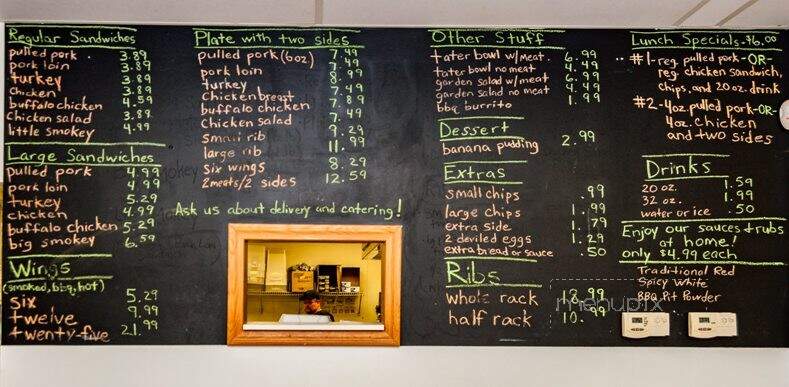 Regular Sandwiches
pulled pork 3.89
pork loin 3.89
turkey 3.89
chicken 3.89
buffalo chicken 4.59
chicken salad 3.89
little smokey 4.99
Large Sandwiches
pulled pork 4.99
pork loin 4.99
turkey 5.29
chicken 4.99
buffalo chicken 5.29
big smokey 6.59
Wings
(smoked, bbq, hot)
six 5.29
twelve 9.99
twenty-five 21.99
Plate with two sides
pulled pork (6oz) 7.49
pork loin 7.49
turkey 8.99
chicken breast 7.49
buffalo chicken 7.89
chicken salad 7.49
small rib 9.29
large rib 11.99
six wings 8.29
2meats/2 sides 12.59
Ask us about delivery and catering!
Other Stuff
tater bowl w/meat 6.99
tater bowl no meat 4.49
garden salad w/meat 6.99
garden salad no meat 4.49
bbq burrito 1.99
Dessert
banana pudding 2.99
Extras
small chips .99
large chips 1.99
extra side 1.79
2 deviled eggs 1.29
extra bread or sauce .50
Ribs
whole rack 18.99
half rack 10.99
Lunch Specials-$6.00
#1-reg. pulled pork-OR-
reg. chicken sandwich,
chips, and 20 oz. drink
#2-4oz. pulled pork-OR-
4oz. chicken
and two sides
Drinks
20 oz. 1.59
32 oz. 1.99
water or ice .50
Enjoy our sauces + rubs
at home!
only $4.99 each
Traditional Red
Spicy White
BBQ Pit Powder
menupix